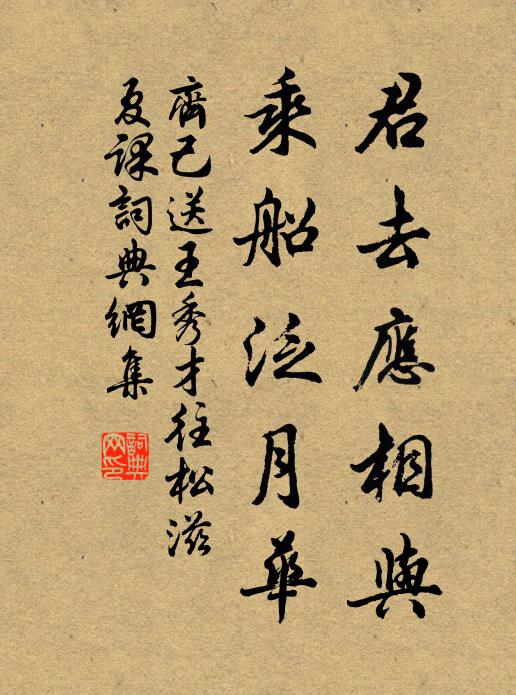 君去應相與
乘船泛月華
齊己送王秀才往松滋
夏課詞典網集
詞典网印